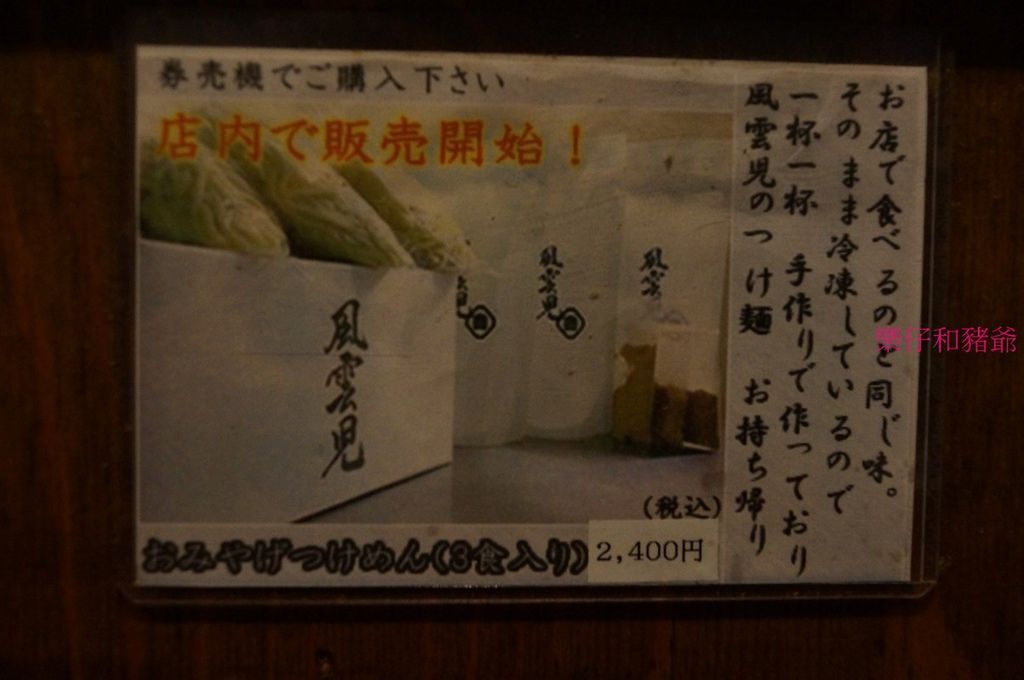 券売機でご購入下さい
店内で販売開始！
風雲児
風雲児
風雲児
風雲
(税込)
おみやげつけめん(3食入り)
2,400円
風雲児のつけ麺 お持ち帰り
一杯一杯 手作りで作っており
そのまま冷凍しているので
お店で食べるのと同じ味。
樂仔和豬爺